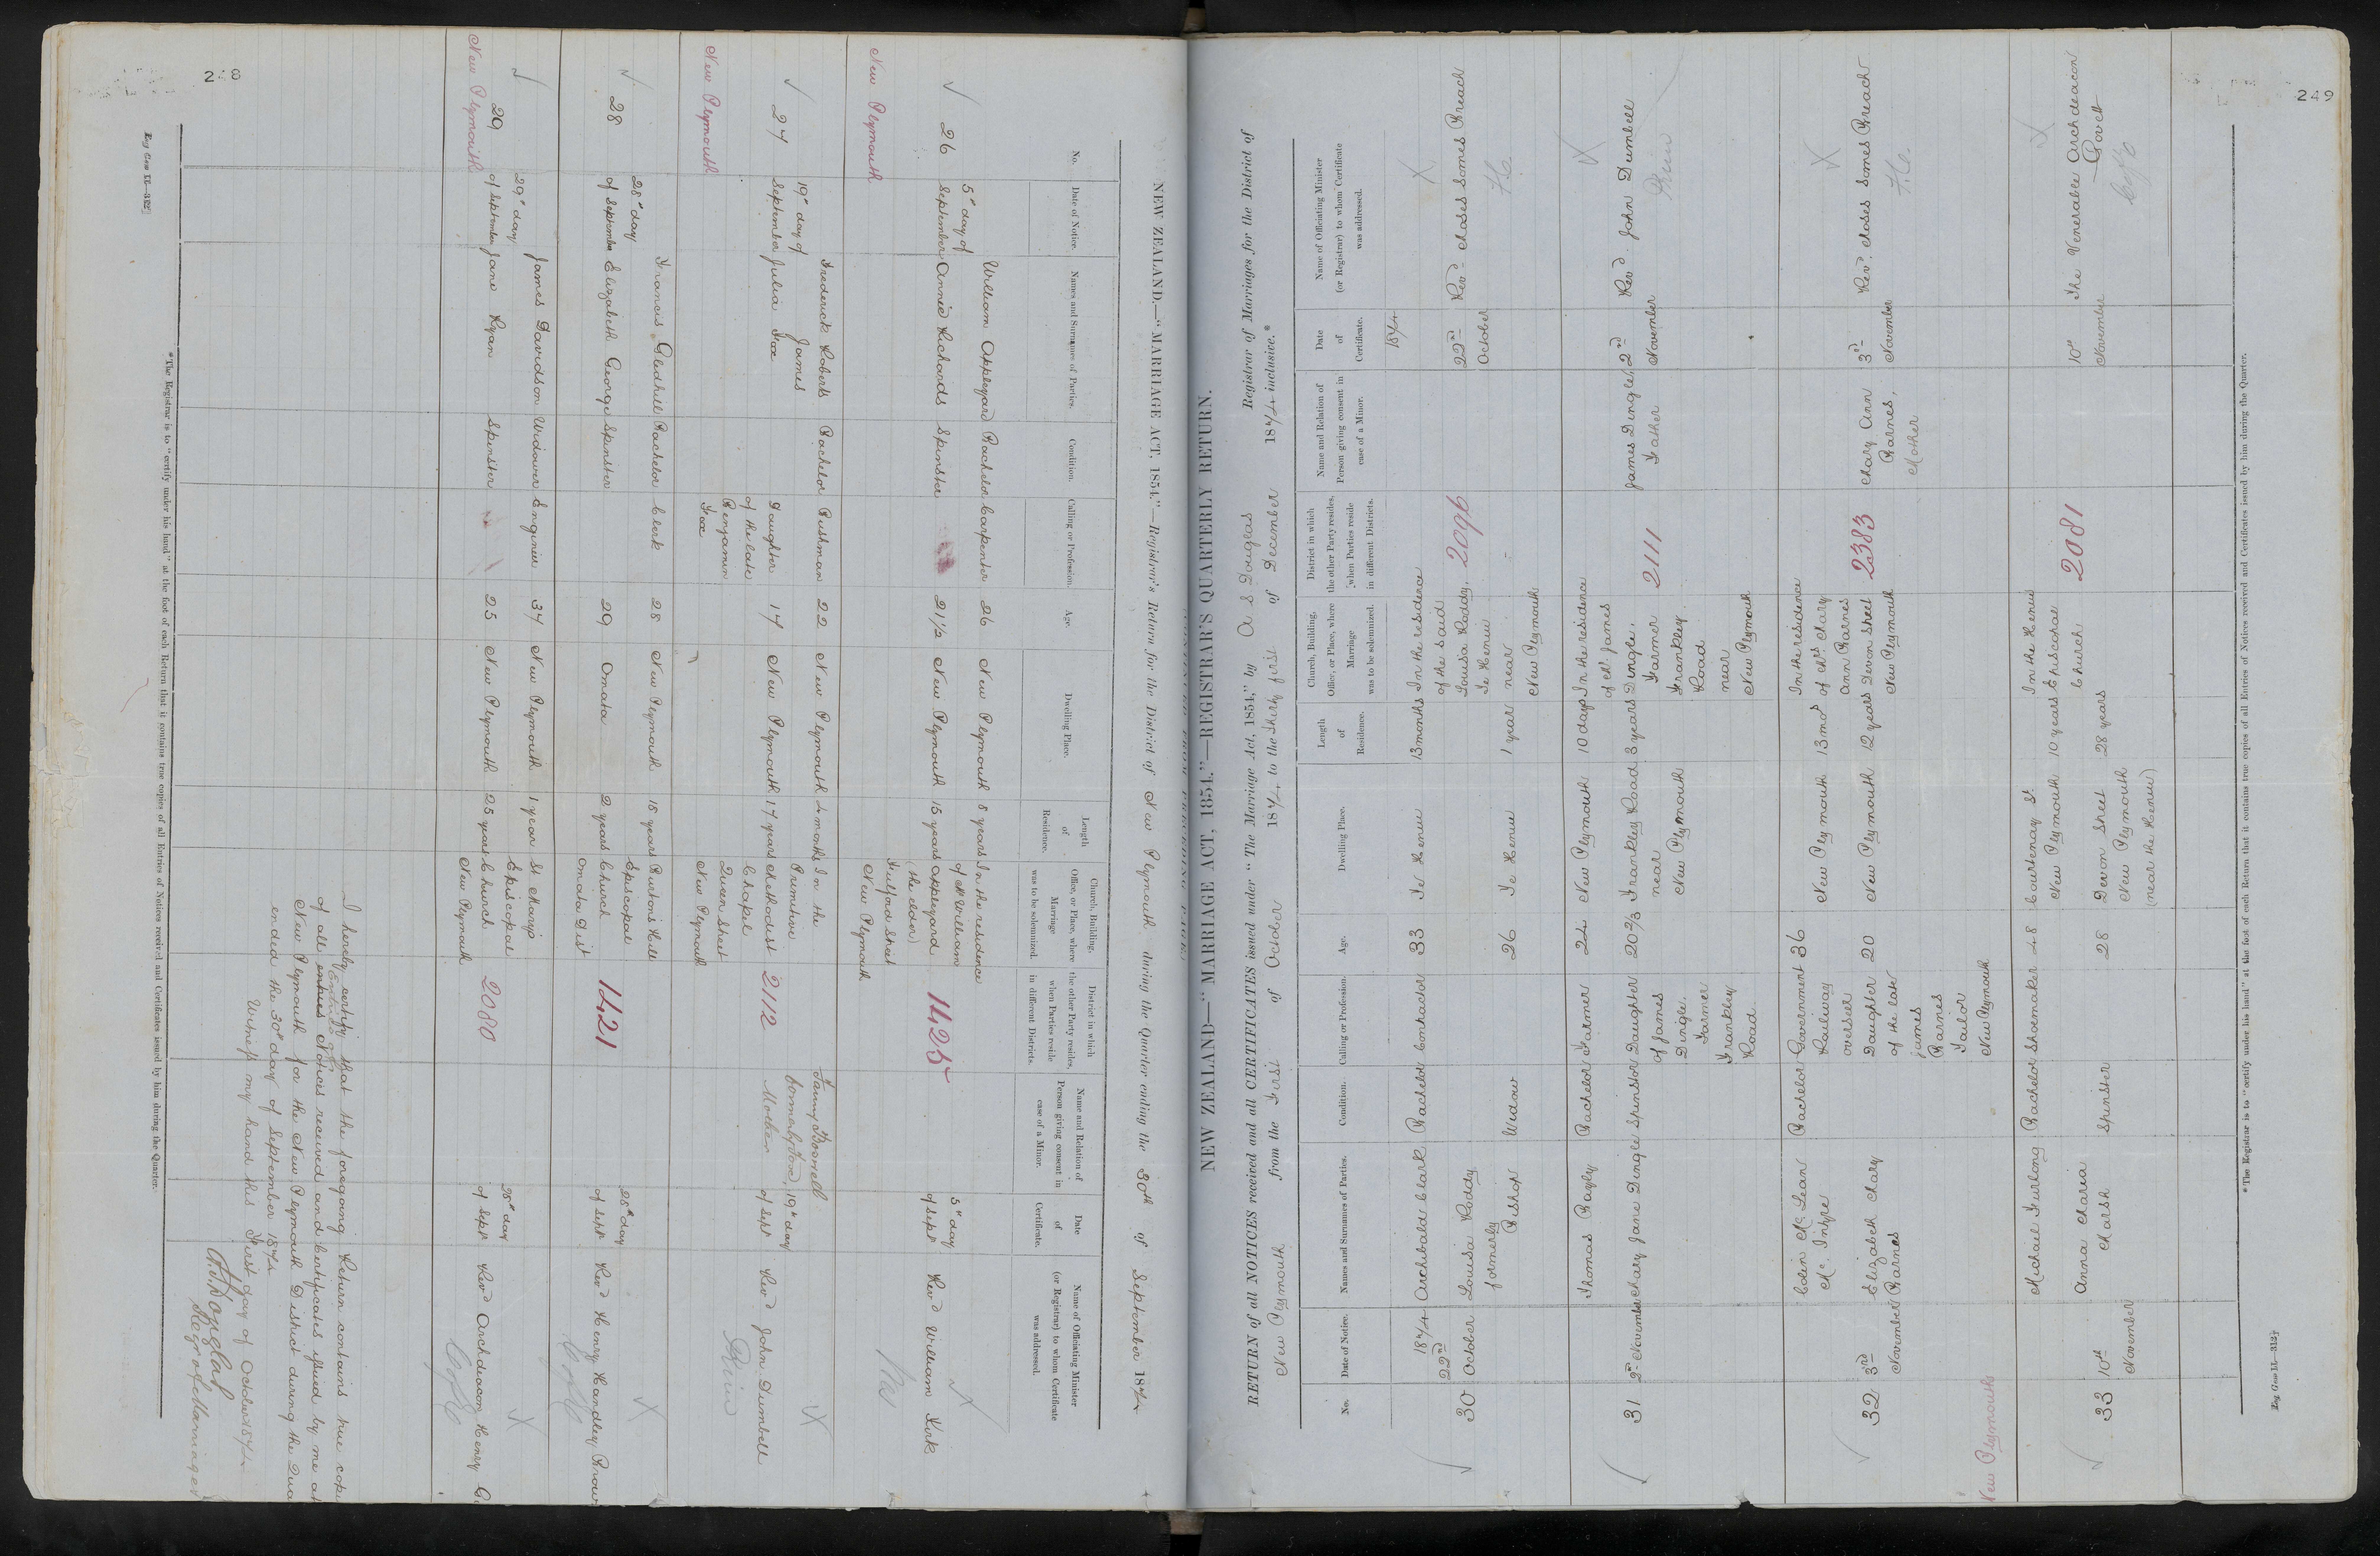 248
NEW ZEALAND.—"MARRIAGE ACT, 1854."—Registrar's Return for the District of New Plymouth during the Quarter ending the 30th of September 1874
No.
Date of Notice.
Names and Surnames of Parties.
Condition.
Calling or Profession.
Age.
Dwelling Place.
Length of Residence.
Church, Building, Office, or Place, where Marriage was to be solemnized.
District in which the other Party resides, when Parties reside in different Districts.
Name and Relation of Person giving consent in case of a Minor.
Date of Certificate.
Name of Officiating Minister (or Registrar) to whom Certificate was addressed.
26
5th day of
September
William Appleyard
Annie Richards
Bachelor
Spinster
Carpenter
26
21½
New Plymouth
New Plymouth
8 years
15 years
In the residence
of Mr William
Appleyard
(the elder)
Fulford Street
New Plymouth
1425
5th day
of Sept
Revd William Kirk
New Plymouth
27
19th day of
September
Frederick Roberts
James
Julia Fox
Bachelor
Bushman
Daughter
of the late
Benjamin
Fox
22
17
New Plymouth
New Plymouth
4 months
17 years
In the
Primitive
Methodist
Chapel
Queen Street
New Plymouth
2112
formerly Fox,
Mother
19th day
of Sept
Revd John Dumbell
Prim
New Plymouth
28
28th day
of September
Francis Gledhill
Elizabeth George
Bachelor
Spinster
Clerk
28
29
New Plymouth
Omata
18 years
2 years
Burton's Hill
Episcopal
Church
Omata Dist
1421
28th day
of Sept
Revd Henry Handley Brown
29
29th day
of September
James Davidson
Jane Ryan
Widower
Spinster
Engineer
37
25
New Plymouth
New Plymouth
1 year
25 years
St Marys
Episcopal
Church
New Plymouth
2080
28th day
of Sept
Revd Archdeacon Henry
New Plymouth
I hereby certify that the foregoing Return contains true copi
of all entries Notices received and Certificates issued by me at
New Plymouth for the New Plymouth District during the Qua
ended the 30th day of September 1874
Witness my hand this First day of October 1874
Regr of Marriages
*The Registrar is to "certify under his hand" at the foot of each Return that it contains true copies of all Entries of Notices received and Certificates issued by him during the Quarter.
249
NEW ZEALAND—"MARRIAGE ACT, 1854."—REGISTRAR'S QUARTERLY RETURN.
RETURN of all NOTICES received and all CERTIFICATES issued under "The Marriage Act, 1854," by A S Douglas Registrar of Marriages for the District of
New Plymouth from the First of October 1874 to the Thirty first of December 1874 inclusive.*
No.
Date of Notice.
Names and Surnames of Parties.
Condition.
Calling or Profession.
Age.
Dwelling Place.
Length of Residence.
Church, Building, Office, or Place, where Marriage was to be solemnized.
District in which the other Party resides, when Parties reside in different Districts.
Name and Relation of Person giving consent in case of a Minor.
Date of Certificate.
Name of Officiating Minister (or Registrar) to whom Certificate was addressed.
30
1874
22nd
October
Archibald Clark
Louisa Roddy
formerly
Bishop
Bachelor
Widow
Contractor
33
26
Te Henui
Te Henui
13 months
1 year
In the residence
of the said
Louisa Roddy,
Te Henui
near
New Plymouth
2096
1874
22nd
October
Revd Moses Somes Breach
F.C.
31
2nd November
Thomas Bayly
Mary Jane Dingle
Bachelor
Spinster
Farmer
Daughter
of James
Dingle.
Farmer
Frankley
Road.
24
20⅔
New Plymouth
Frankley Road
near
New Plymouth
10 days
3 years
In the residence
of Mr. James
Dingle.
Farmer
Frankley
Road
near
New Plymouth
2111
James Dingle,
Father
2nd
November
Revd. John Dumbell
Prim
32
3rd
November
Colin Mc Lean
Mc. Intyre
Elizabeth Mary
Barnes
Bachelor
Government
Railway
overseer
Daughter
of the late
James
Barnes
Tailor
New Plymouth
36
20
New Plymouth
New Plymouth
13 mos
12 years
In the residence
of Mrs. Mary
Ann Barnes
Devon Street
New Plymouth
2383
Mary Ann
Barnes,
Mother
3rd
November
Revd. Moses Somes Breach
F.C.
New Plymouth
33
10th
November
Michael Furlong
Anna Maria
Marsh
Bachelor
Spinster
Shoemaker
48
28
Courtenay St.
New Plymouth
Devon Street
New Plymouth
(near the Henui)
10 years
28 years
In the Henui
Episcopal
Church
2081
10th
November
The Venerable Archdeacon
Govett
*The Registrar is to "certify under his hand" at the foot of each Return that it contains true copies of all Entries of Notices received and Certificates issued by him during the Quarter.